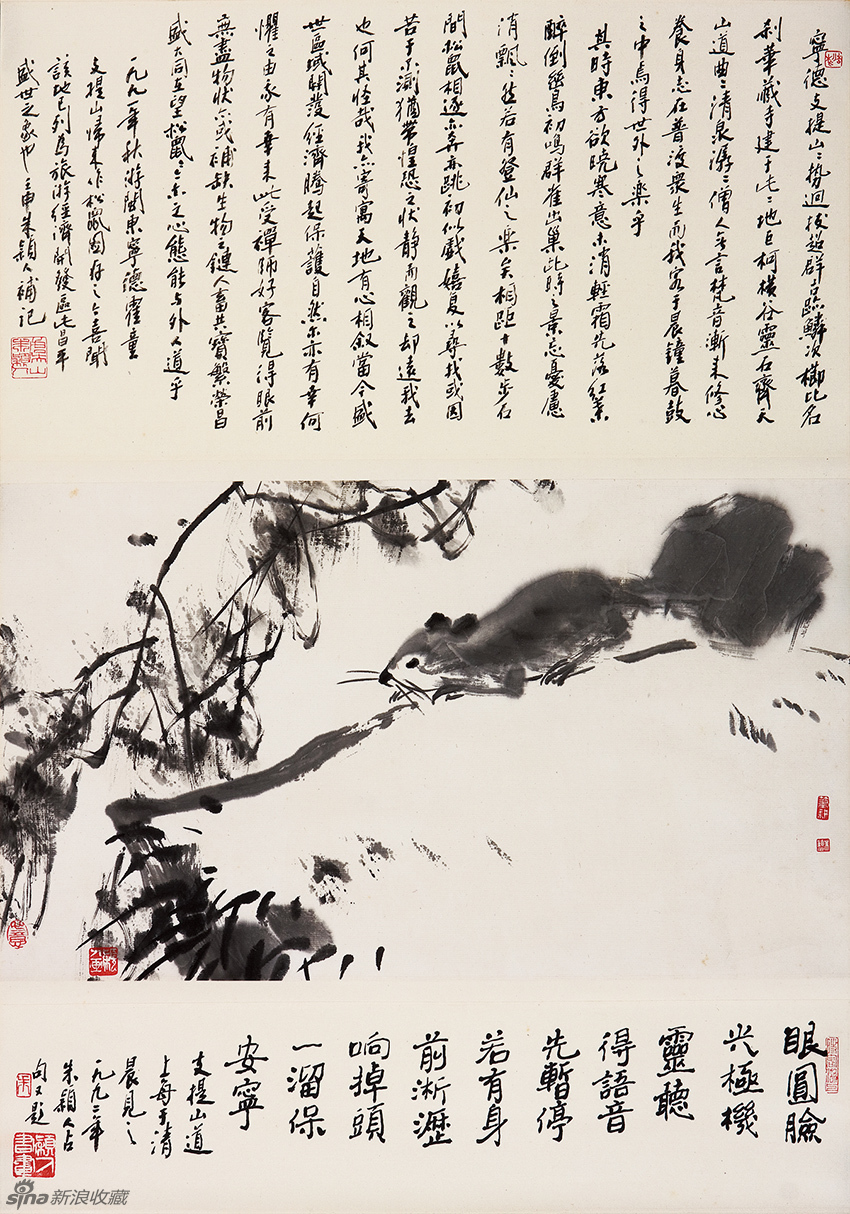 寧德支提山〻勢迴拔超群鱗次櫛比名
刹華藏寺建于此〻地巨柯橫谷靈石齊天
山道曲〻清泉潺〻僧人無言梵音漸来修心
養身志在普渡衆生而我客于晨鐘暮鼓
之中焉得世外之樂乎
其時東方欲曉寒意未消輕霜先落紅葉
醉倒幽鳥初鳴群雀出巢此時之景忘憂慮
消飄〻然若有登仙之樂矣相距十數步石
間松鼠相逐亦奔亦跳初似戲嬉复以尋找或因
苦于不測猶帶惶恐之狀靜而觀之却遠我去
也何其怪哉我亦寄寓天地有心相叙當今盛
世區域開發經濟騰起保護自然尔亦有幸何
懼之由余有幸来此受禪師好客覽得眼前
無盡物狀或補缺生物之鏈人畜共寶繁榮昌
盛大同在望松鼠〻尔之心態能与外人道乎
一九九一年秋游閩東寧德霍童
支提山歸来作松鼠圖存之今喜聞
該地已列爲旅游經濟開發區此昌平
盛世之象也壬申朱穎人補記
眼圓臉
尖極機
靈聽
得語音
先暫停
若有身
前淅瀝
响掉頭
一溜保
安寧
支提山道
上每于清
晨見之
一九九二年
朱穎人占
句又題
sina新浪收藏